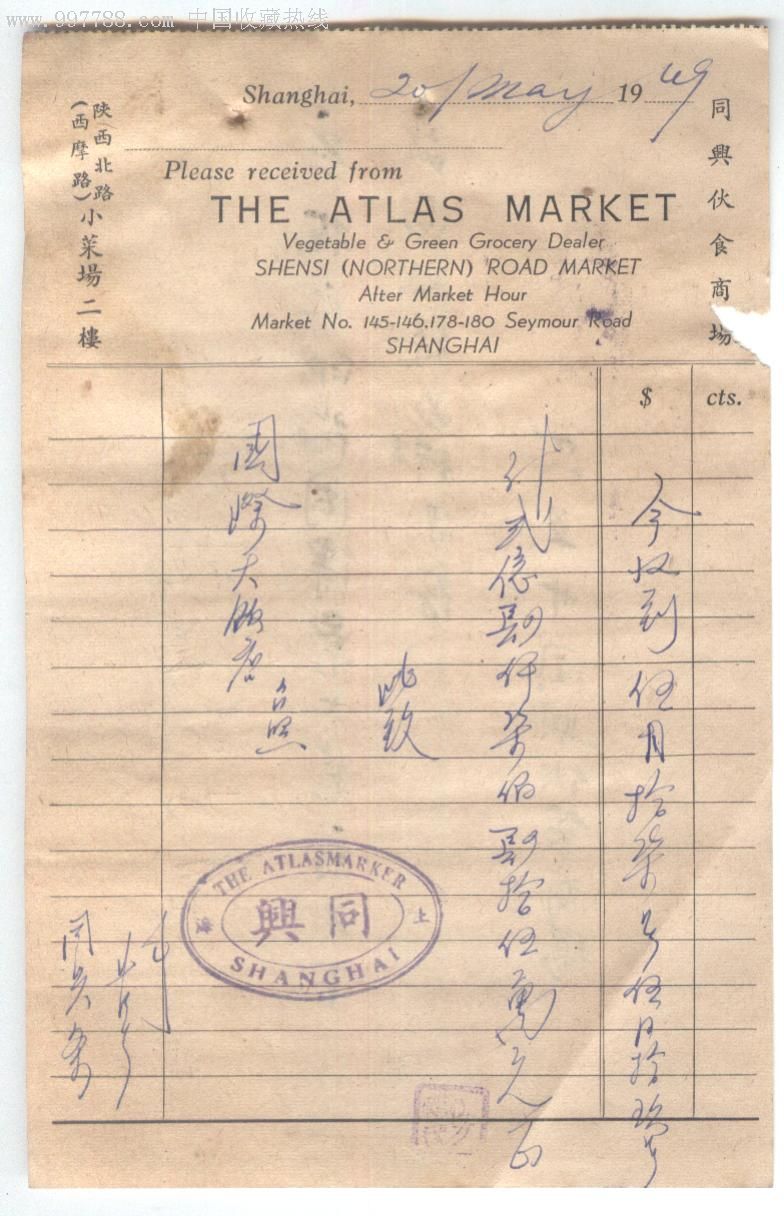 www.997788.com 中国收藏热线
Shanghai, 20/May 1949
同興伙食商場
陝西北路
(西摩路)
小菜場二樓
Please received from
THE ATLAS MARKET
Vegetable & Green Grocery Dealer
SHENSI (NORTHERN) ROAD MARKET
After Market Hour
Market No. 145-146.178-180 Seymour Road
SHANGHAI
$ cts.
今收到伍月拾柒号伍月拾玖号
計弍億捌仟柒佰捌拾伍萬元正
此致
國際大飯店
台照
THE ATLASMARKER
上海
同興
SHANGHAI
同兴条